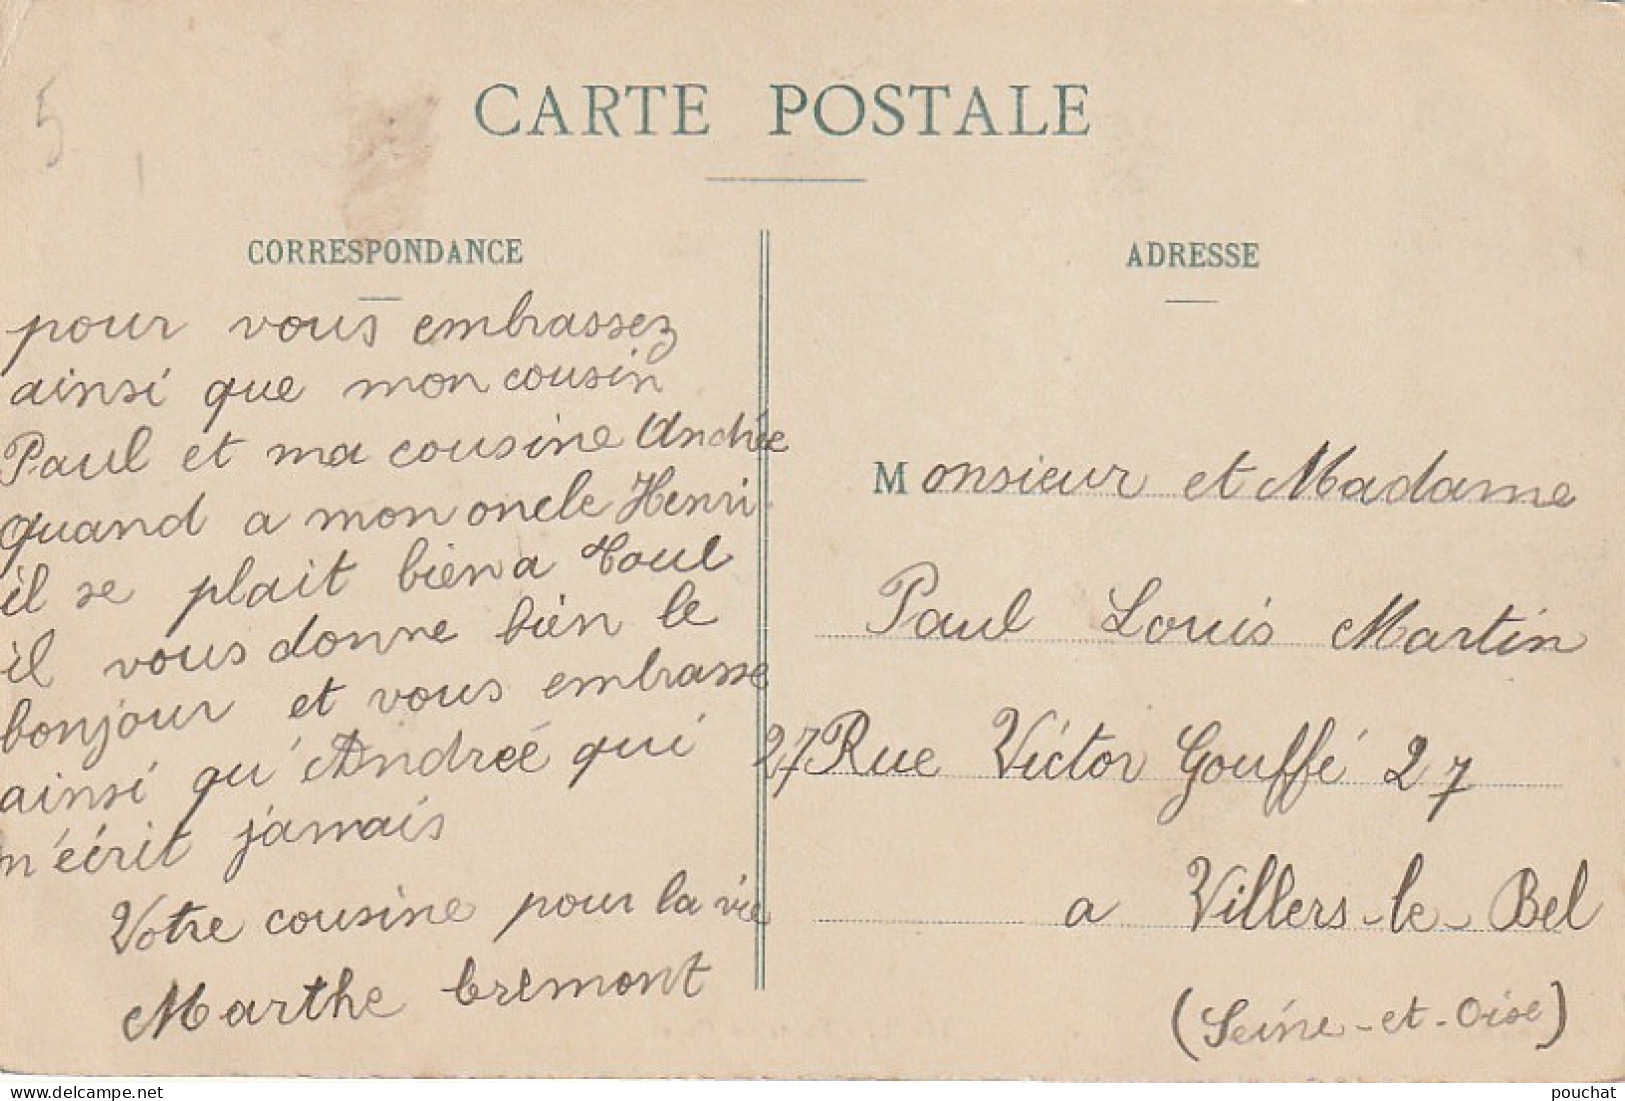 5
CARTE POSTALE
CORRESPONDANCE
pour vous embrassez
ainsi que mon cousin
Paul et ma cousine Andrée
quand a mon oncle Henri
il se plait bien a Toul
il vous donne bien le
bonjour et vous embrasse
ainsi qu'Andreé qui
n'écrit jamais
Votre cousine pour la vie
Marthe bremont
ADRESSE
Monsieur et Madame
Paul Louis Martin
27 Rue Victor Gouffé 27
a Villers-le-Bel
(Seine-et-Oise)
delcampe.net
pouchat